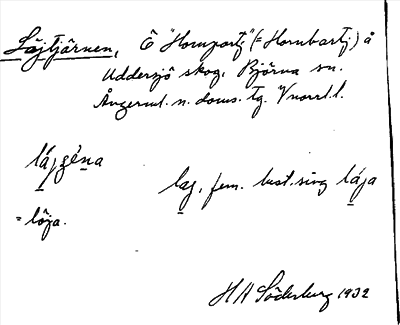 Löjtjärnen, Ö "Hornpartj" (= Hornbartj) å
Uddersjö skog, Björna sn.
Ångerml. n. doms. tg. Vnorrl. l.
lájgéna
lag, fem. best. sing lája
= löja.
H A Söderberg 1932